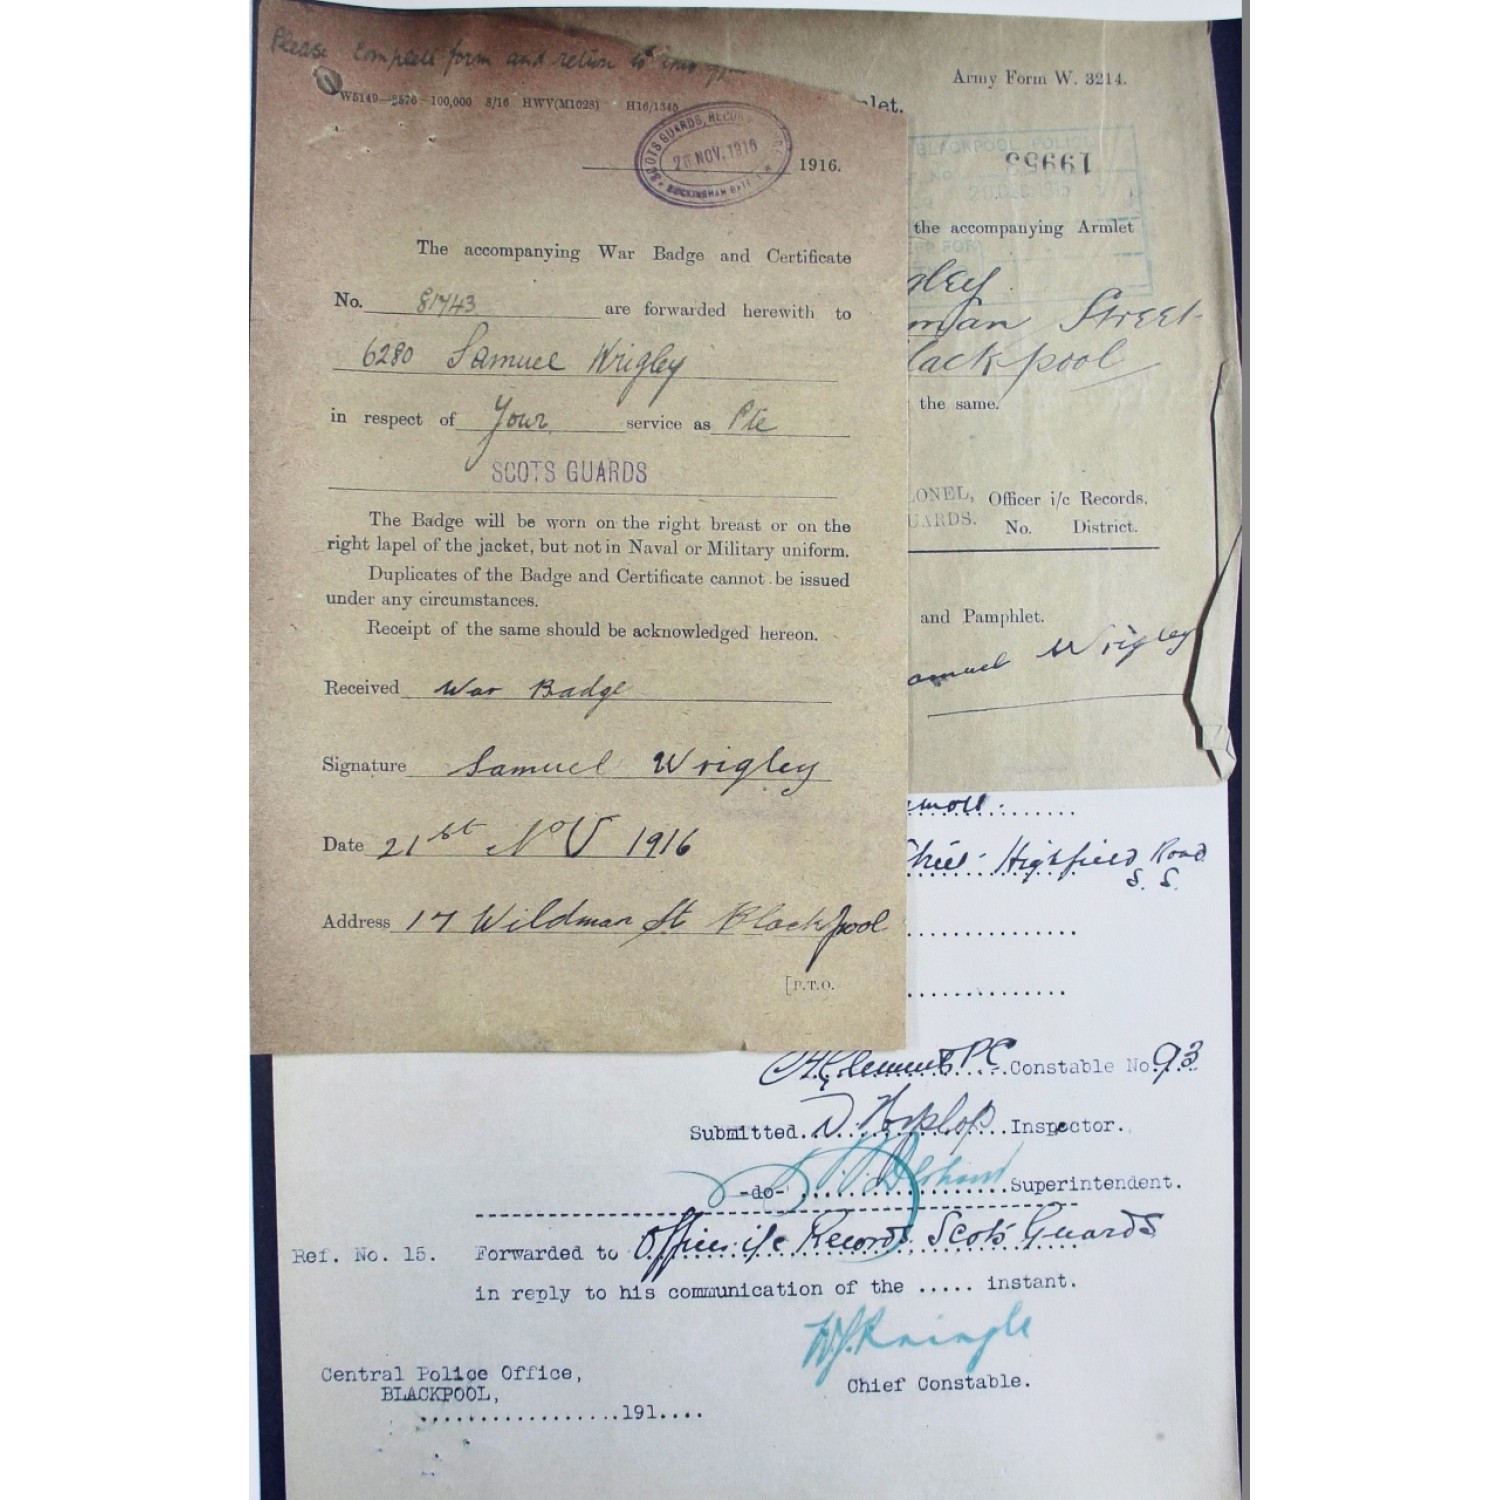 Please Complete form and return to
W5149—8576—100,000 8/16 HWV(M1028) H16/1345
SCOTS GUARDS, RECORD
NOV. 1916
BUCKINGHAM GATE
1916.
The accompanying War Badge and Certificate
No. 81743 are forwarded herewith to
6280 Samuel Wrigley
in respect of Your service as Pte
SCOTS GUARDS
The Badge will be worn on the right breast or on the
right lapel of the jacket, but not in Naval or Military uniform.
Duplicates of the Badge and Certificate cannot be issued
under any circumstances.
Receipt of the same should be acknowledged hereon.
Received War Badge
Signature Samuel Wrigley
Date 21st Nov 1916
Address 17 Wildman St Blackpool
[P.T.O.
Army Form W. 3214.
let.
BLACKPOOL POLICE
19955
the accompanying Armlet
gley.
man Street
lackpool
the same.
ONEL, Officer i/c Records,
UARDS. No. District.
and Pamphlet.
amuel Wrigley
Highfield Road
S. S.
Clement P.C. Constable No. 93
Submitted D. Inspector.
-do- Superintendent.
Ref. No. 15. Forwarded to Officer i/c Records Scots Guards
in reply to his communication of the ..... instant.
W.J. Pringle
Chief Constable.
Central Police Office,
BLACKPOOL,
..................191....